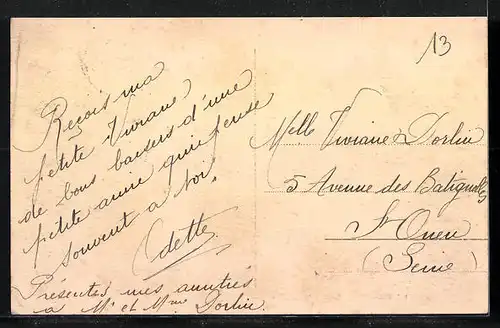 13
Reçois ma
petite Viviane
de bons baisers d'une
petite amie qui pense
souvent a toi.
Odette
Présentes mes amitiés
a Mr et Mme Dorlin.
Melle Viviane Dorlin
5 Avenue des Batignolles
St Ouen
(Seine)